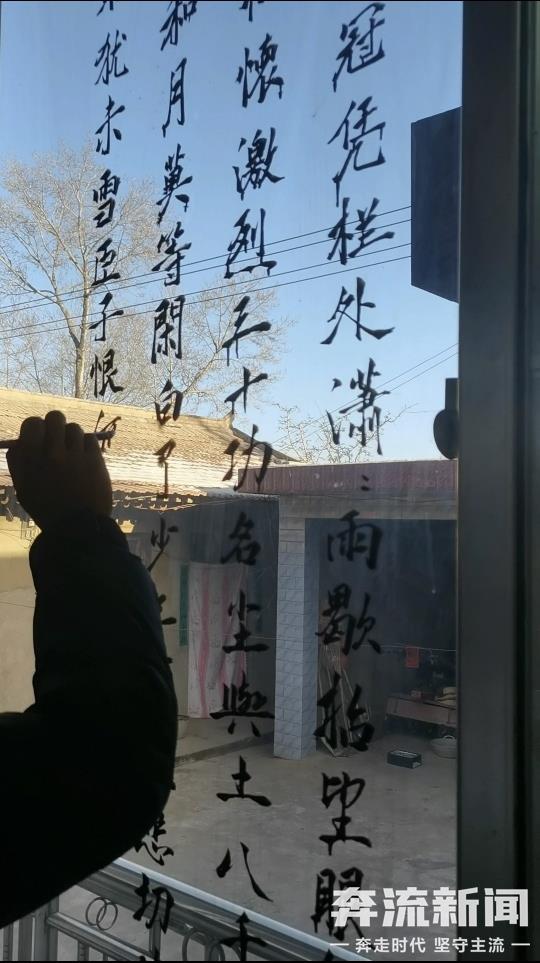 冠凭栏处潇〻雨歇抬望眼
懷激烈三十功名尘與土八千
和月莫等閑白了少年悲切
犹未雪臣子恨何
奔流新闻
奔走时代 坚守主流